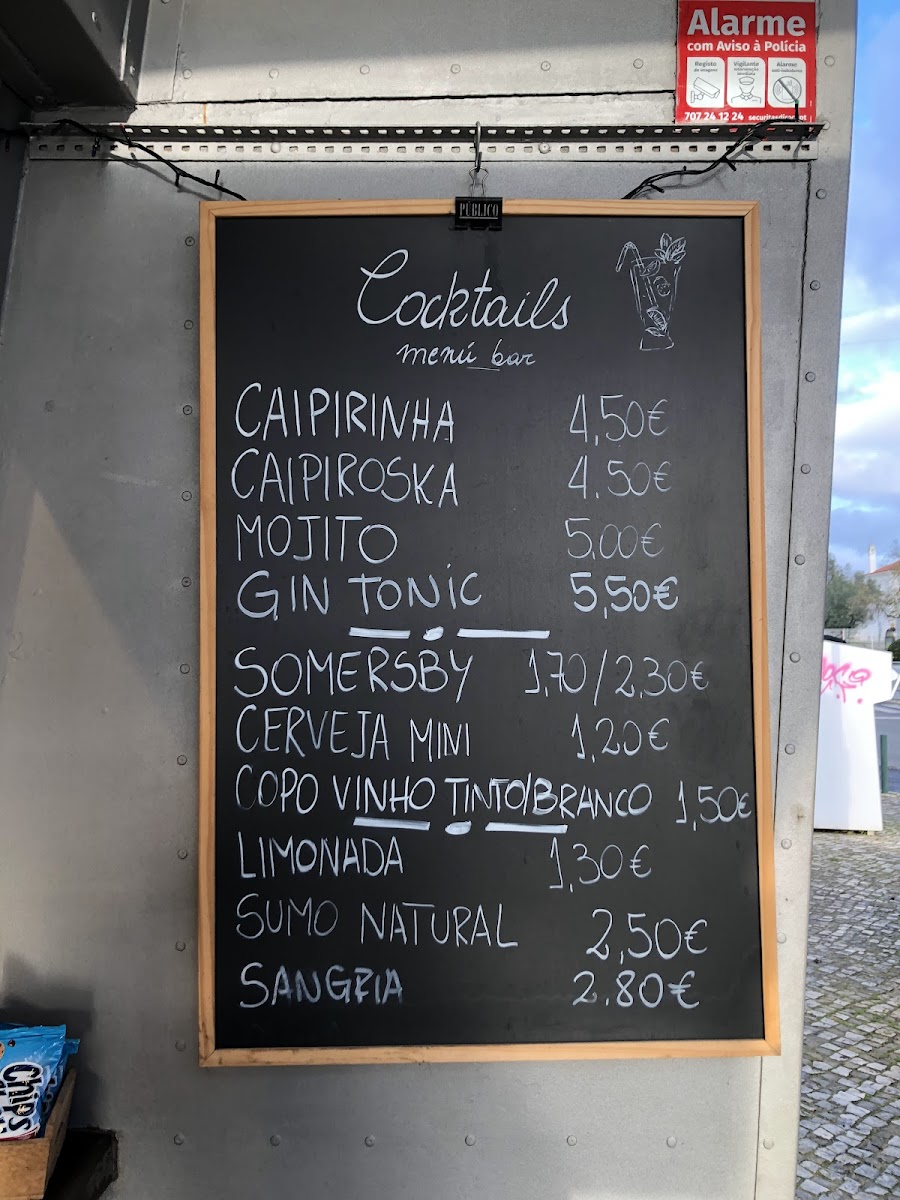 Alarme
com Aviso à Polícia
Registo de imagens
Vigilante intervenção imediata
Alarme
707 24 12 24 securitasdirect.pt
PÚBLICO
Cocktails
menú bar
CAIPIRINHA 4,50€
CAIPIROSKA 4.50€
MOJITO 5,00€
GIN TONIC 5,50€
SOMERSBY 1,70/2,30€
CERVEJA MINI 1,20€
COPO VINHO TINTO/BRANCO 1,50€
LIMONADA 1,30€
SUMO NATURAL 2,50€
SANGRIA 2.80€
Chips